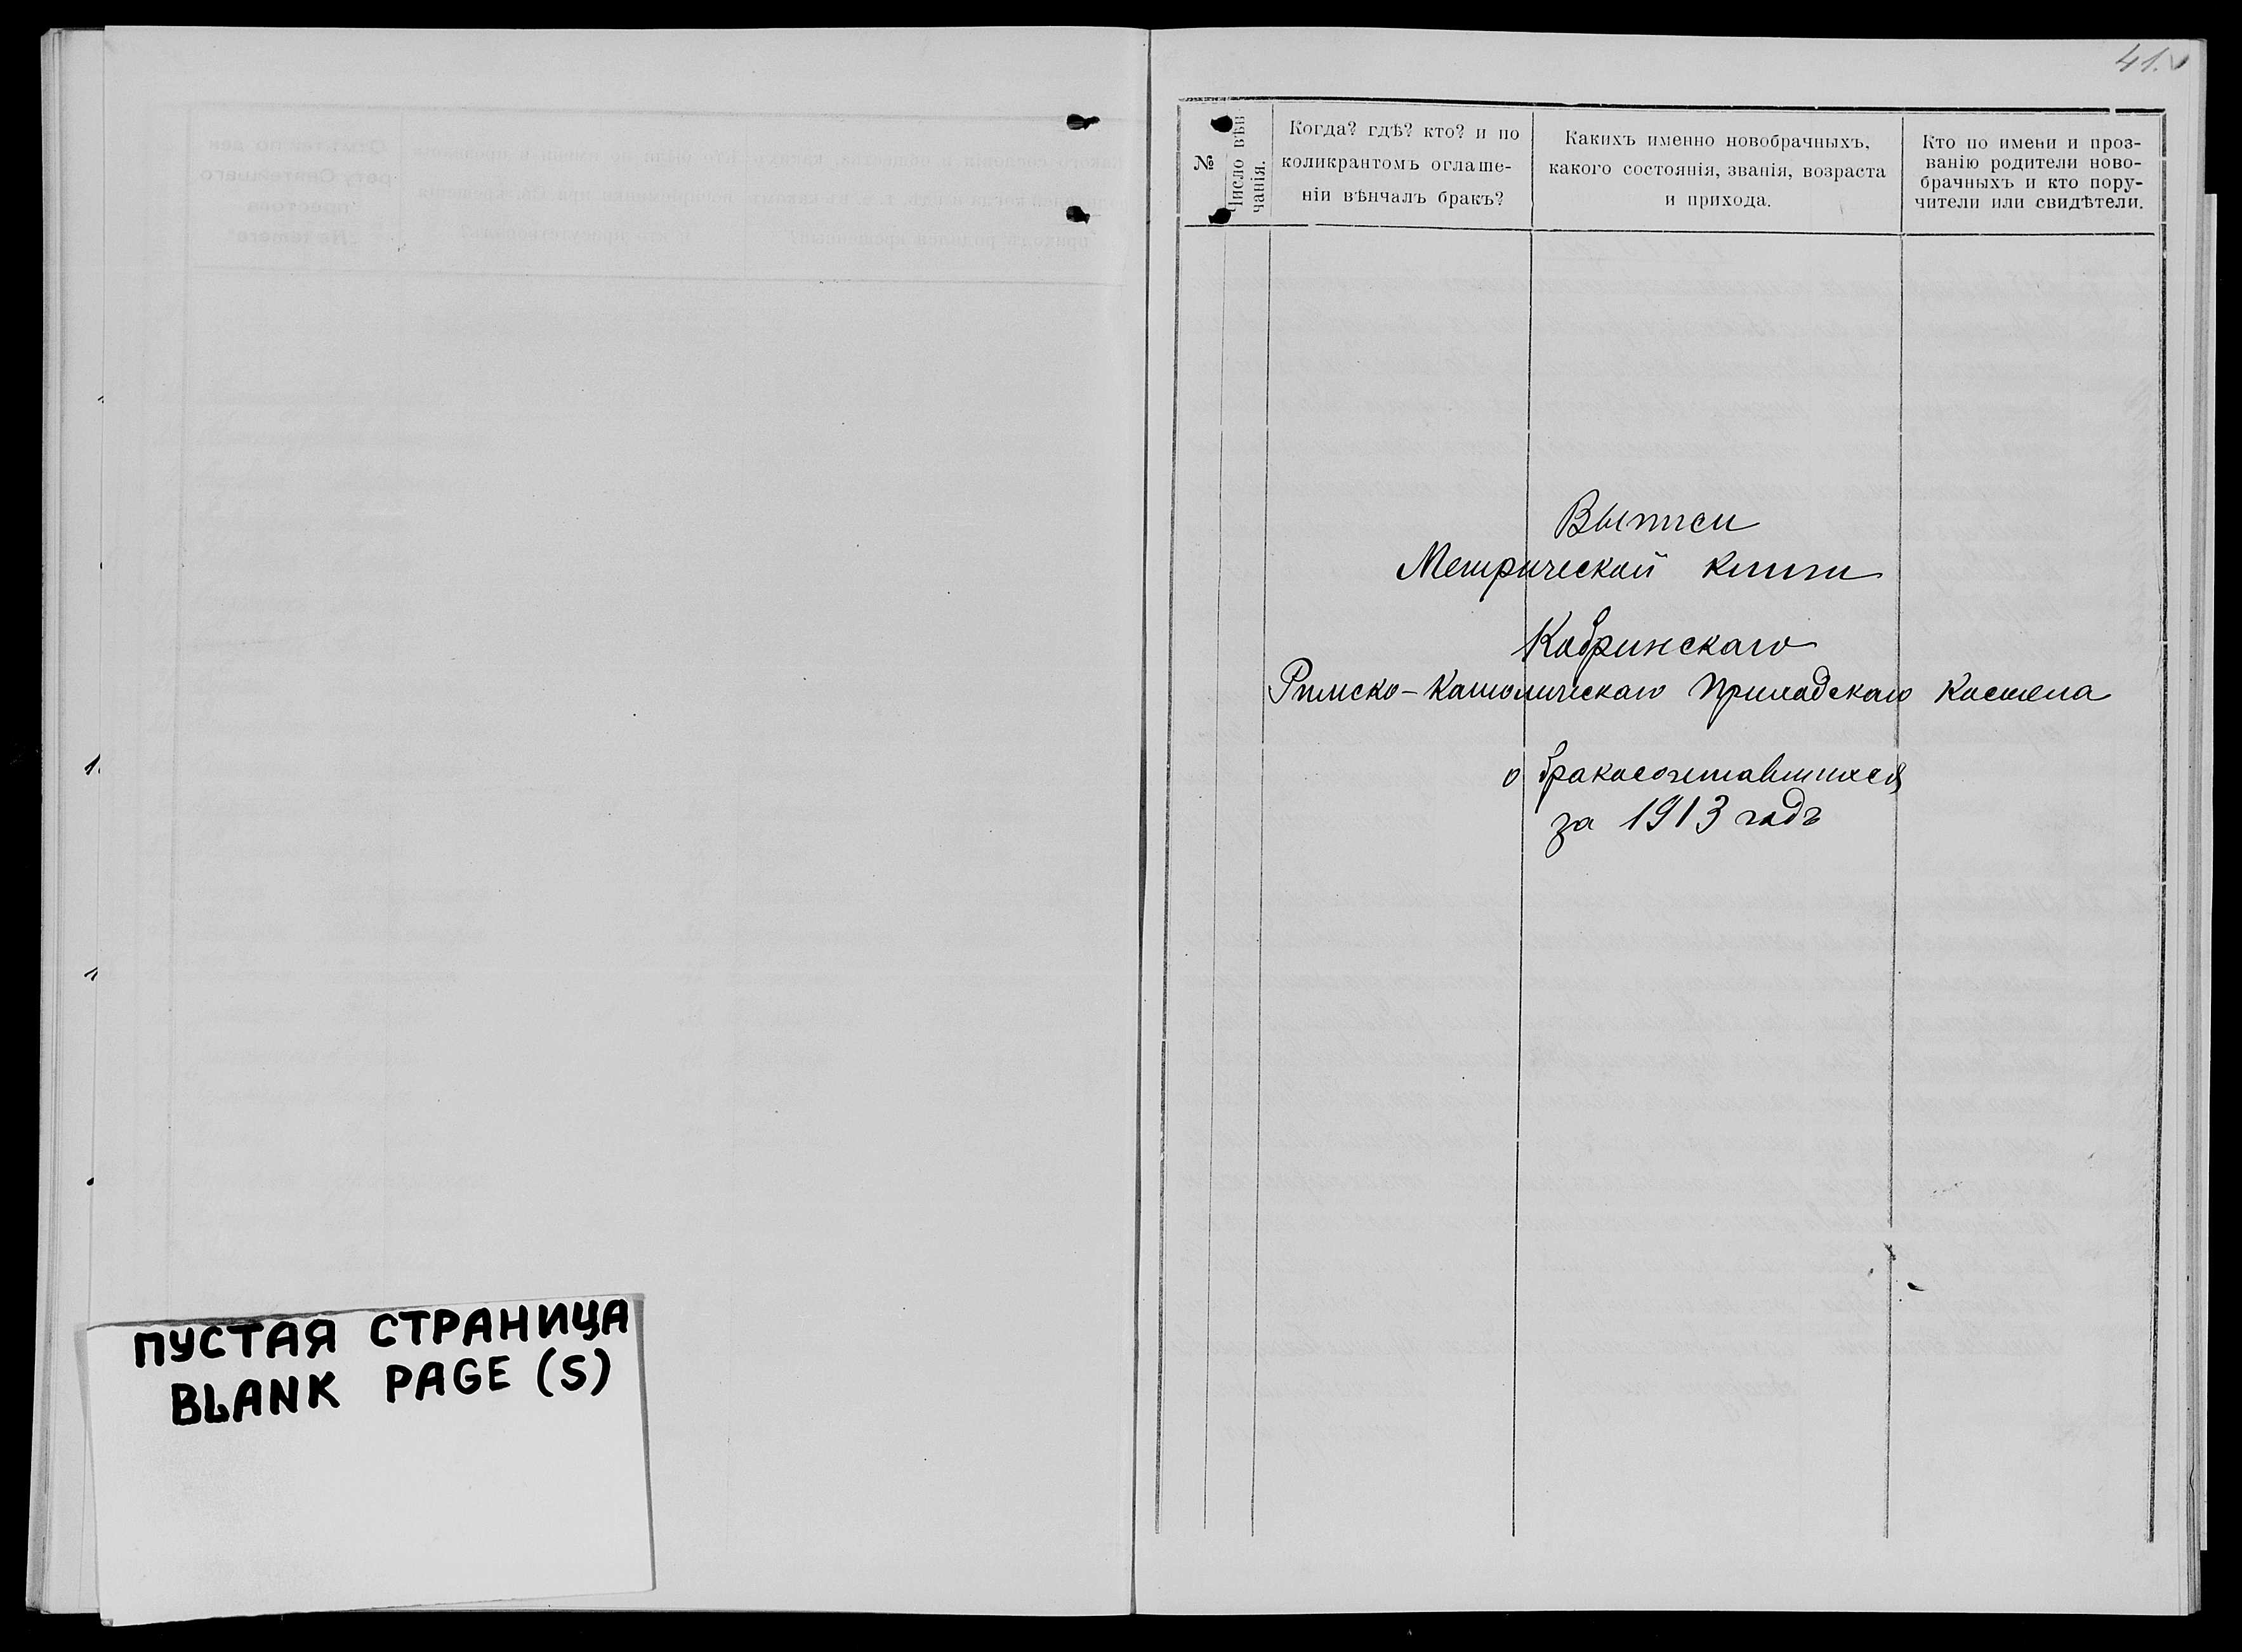 ПУСТАЯ СТРАНИЦА
BLANK PAGE (S)
41.
№
Число вѣн
чанія.
Когда? гдѣ? кто? и по
коликрантомъ оглаше-
ніи вѣнчалъ бракъ?
Какихъ именно новобрачныхъ,
какого состоянія, званія, возраста
и прихода.
Кто по имени и проз-
ванію родители ново-
брачныхъ и кто пору-
чители или свидѣтели.
Выписи
Метрической книги
Кобринскаго
Римско-Католическаго Приходскаго Костела
о бракосочетавшихся
за 1913 годъ